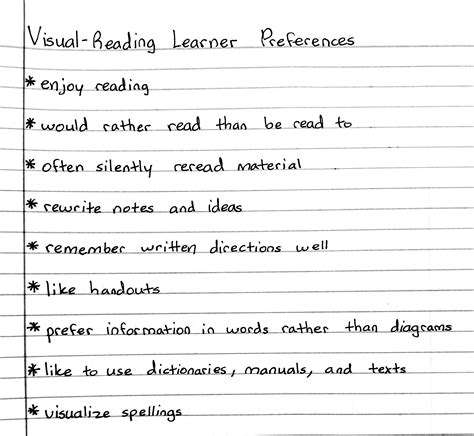 Visual-Reading Learner Preferences
* enjoy reading
* would rather read than be read to
* often silently reread material
* rewrite notes and ideas
* remember written directions well
* like handouts
* prefer information in words rather than diagrams
* like to use dictionaries, manuals, and texts
* visualize spellings